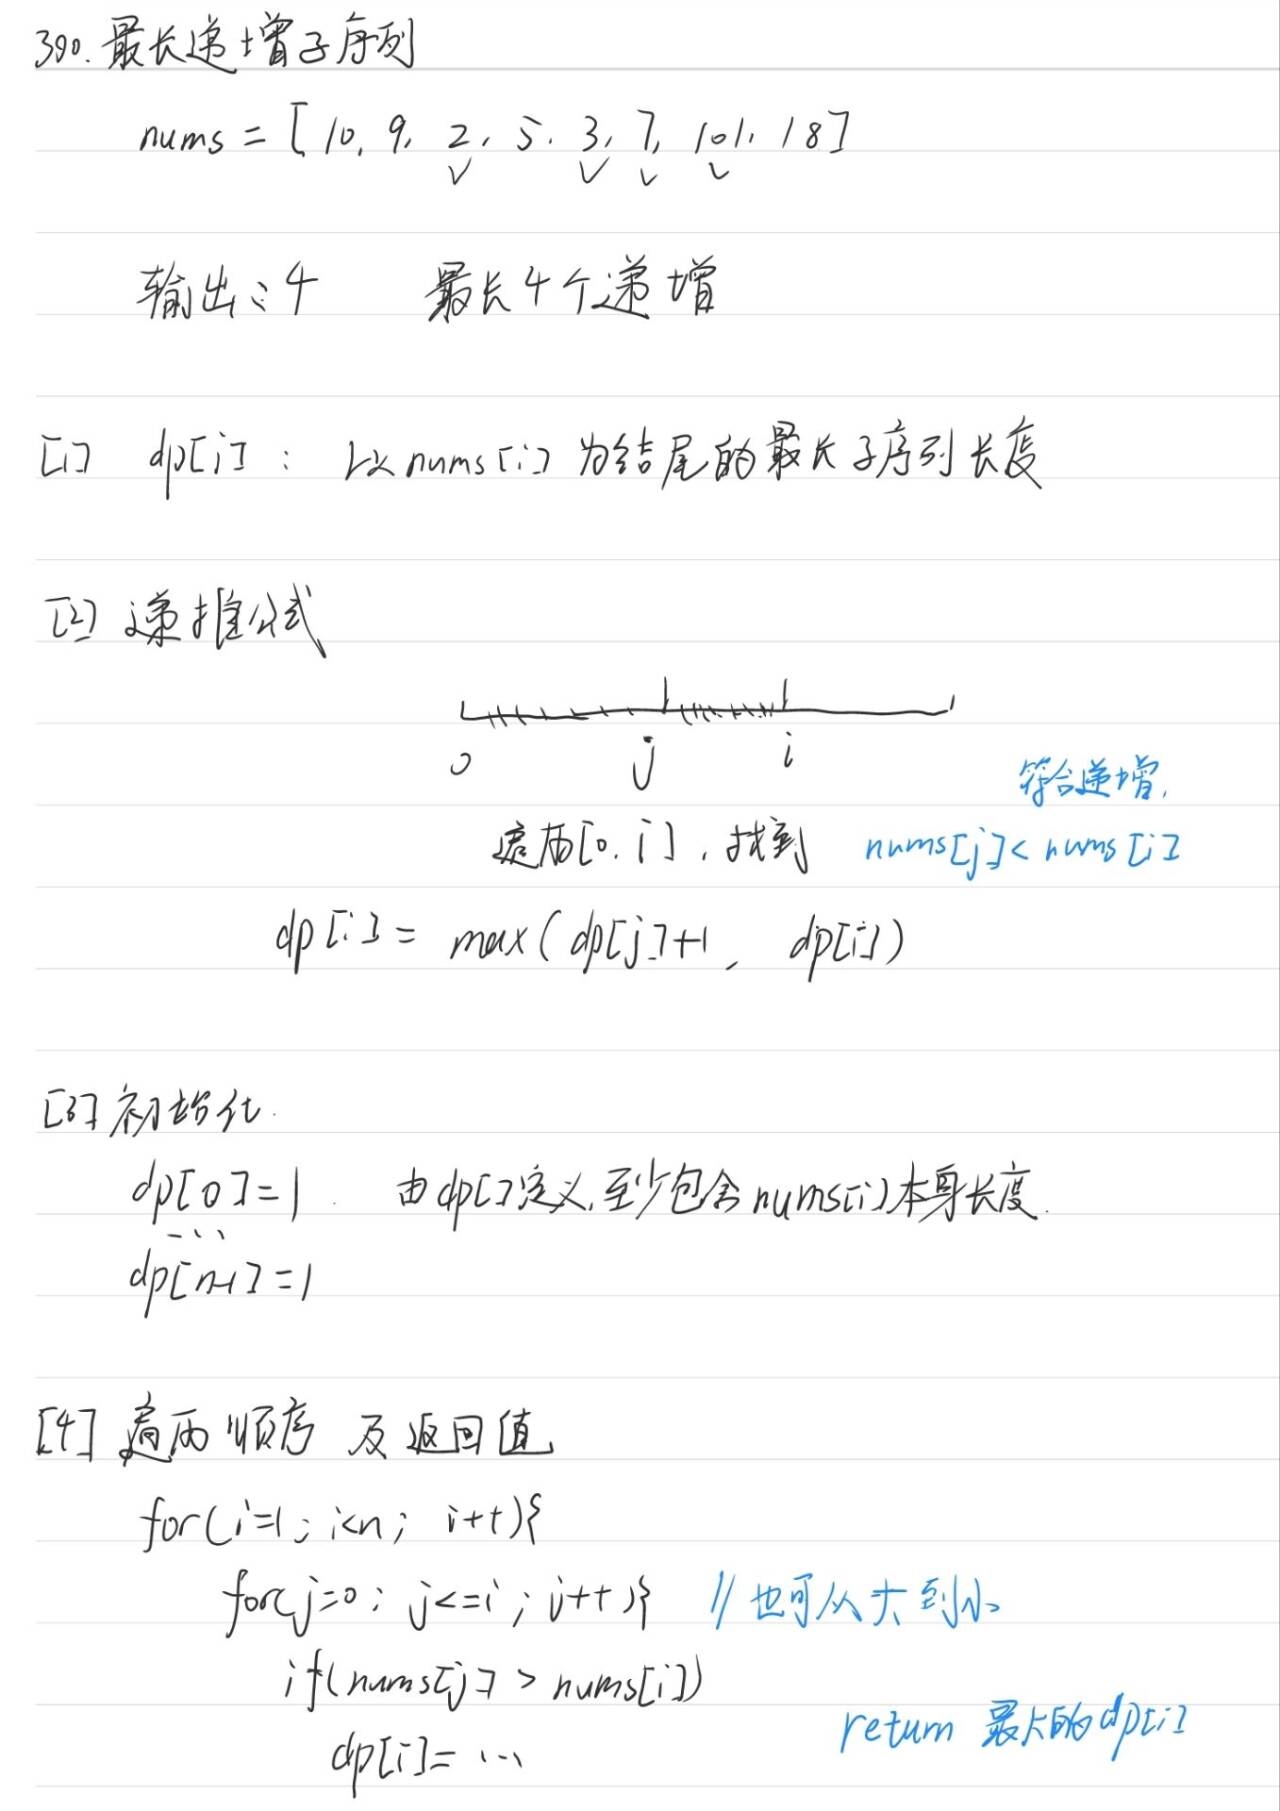 390. 最长递增子序列
nums = [10, 9, 2, 5, 3, 7, 101, 18]
输出:4 最长4个递增
[1] dp[i]: 以nums[i]为结尾的最长子序列长度
[2] 递推公式
0 j i
符合递增,
遍历[0, i], 找到 nums[j] < nums[i]
dp[i] = max(dp[j]+1, dp[i])
[3] 初始化.
dp[0]=1. 由dp[]定义,至少包含nums[i]本身长度.
...
dp[n-1]=1
[4] 遍历顺序 及返回值
for(i=1; i<n; i++){
for(j=0; j<=i; j++){ // 也可从大到小
if(nums[j] > nums[i])
dp[i]= ... return 最大的dp[i]